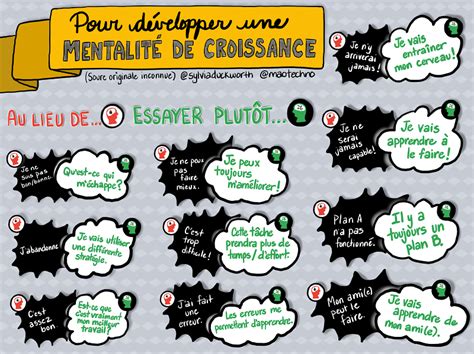 Pour développer une
MENTALITÉ DE CROISSANCE
(Source originale inconnue) @sylviaduckworth @maotechno
Je n'y
arriverai
jamais!
Je vais
entraîner
mon cerveau!
AU LIEU DE...
ESSAYER PLUTÔT...
Je ne
suis pas
bon/bonne.
Qu'est-ce qui
m'échappe?
Je ne peux
pas faire
mieux.
Je peux
toujours
m'améliorer!
Je ne
serai
jamais
capable!
Je vais
apprendre à
le faire!
J'abandonne
Je vais utiliser
une différente
stratégie.
C'est
trop
difficile!
Cette tâche
prendra plus de
temps/d'effort.
Plan A
n'a pas
fonctionné.
Il y a
toujours un
plan B.
C'est
assez
bon
Est-ce que
c'est vraiment
mon meilleur
travail?
J'ai fait
une
erreur.
Les erreurs me
permettent d'apprendre.
Mon ami(e)
peut le
faire.
Je vais
apprendre de
mon ami(e).